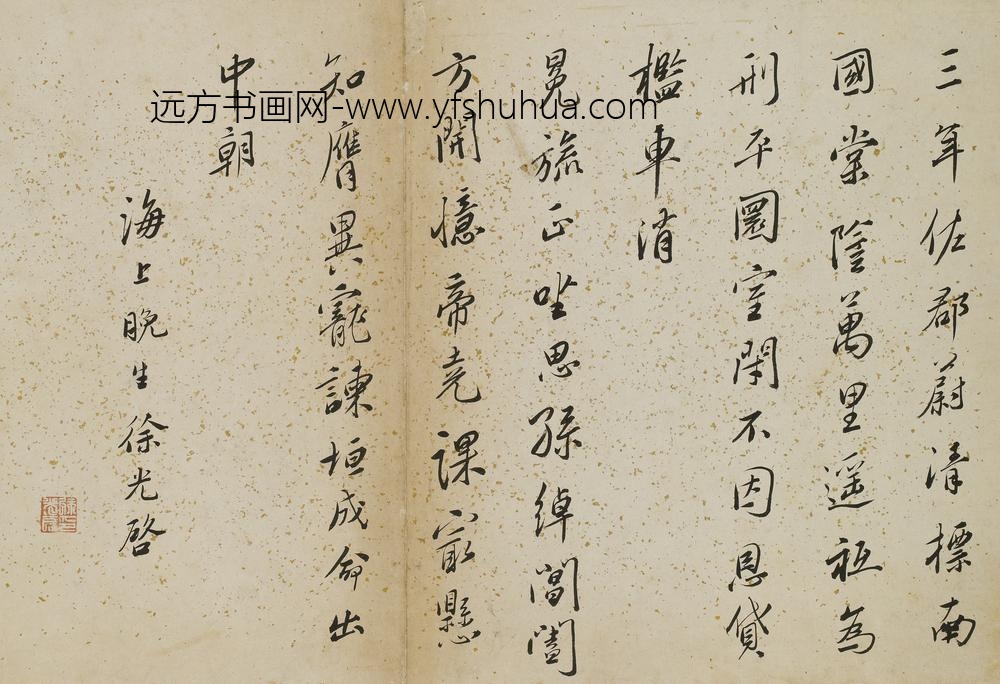 三年佐郡蔚清標南
國棠陰萬里遥祗為
刑平圜室閑不因恩貸
檻車消
冕旒正坐思孫綽閶闔
方開憶帝堯課最懸
知膺異寵諫垣成命出
中朝
海上晚生徐光啓
远方书画网-www.yfshuhua.com